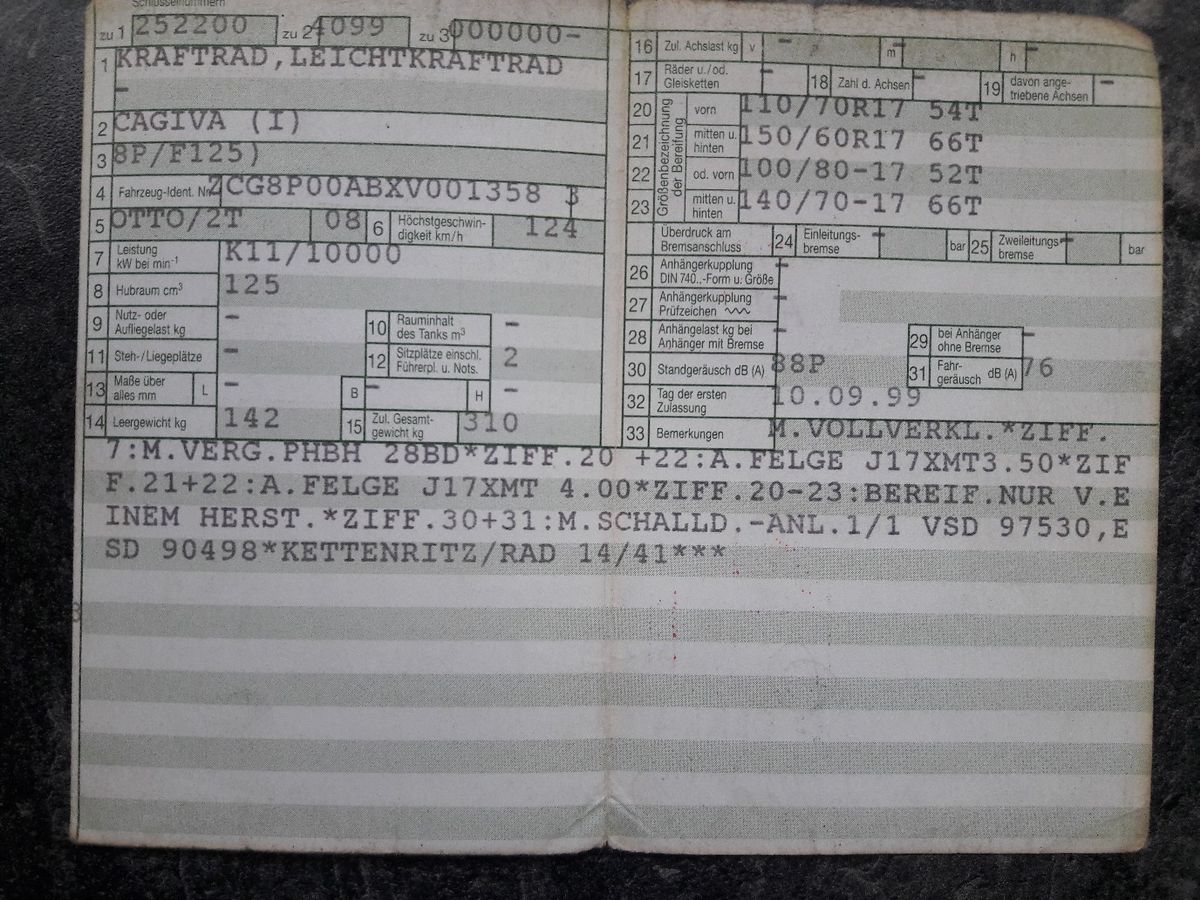 Schlüsselnummern
zu 1 252200 zu 2 4099 zu 3 000000-
1 KRAFTRAD,LEICHTKRAFTRAD
-
2 CAGIVA (I)
3 8P/F125)
4 Fahrzeug-Ident. Nr. ZCG8P00ABXV001358 3
5 OTTO/2T 08 6 Höchstgeschwin-
digkeit km/h 124
7 Leistung
kW bei min-1 K11/10000
8 Hubraum cm³ 125
9 Nutz- oder
Aufliegelast kg - 10 Rauminhalt
des Tanks m³ -
11 Steh-/Liegeplätze - 12 Sitzplätze einschl.
Führerpl. u. Nots. 2
13 Maße über
alles mm L - B - H -
14 Leergewicht kg 142 15 Zul. Gesamt-
gewicht kg 310
16 Zul. Achslast kg v - m - h -
17 Räder u./od.
Gleisketten - 18 Zahl d. Achsen - 19 davon ange-
triebene Achsen -
Größenbezeichnung
der Bereifung
20 vorn 110/70R17 54T
21 mitten u.
hinten 150/60R17 66T
22 od. vorn 100/80-17 52T
23 mitten u.
hinten 140/70-17 66T
Überdruck am
Bremsanschluss 24 Einleitungs-
bremse - bar 25 Zweileitungs-
bremse - bar
26 Anhängerkupplung
DIN 740..-Form u. Größe -
27 Anhängerkupplung
Prüfzeichen -
28 Anhängelast kg bei
Anhänger mit Bremse - 29 bei Anhänger
ohne Bremse -
30 Standgeräusch dB (A) 88P 31 Fahr-
geräusch dB (A) 76
32 Tag der ersten
Zulassung 10.09.99
33 Bemerkungen M.VOLLVERKL.*ZIFF.
7:M.VERG.PHBH 28BD*ZIFF.20 +22:A.FELGE J17XMT3.50*ZIF
F.21+22:A.FELGE J17XMT 4.00*ZIFF.20-23:BEREIF.NUR V.E
INEM HERST.*ZIFF.30+31:M.SCHALLD.-ANL.1/1 VSD 97530,E
SD 90498*KETTENRITZ/RAD 14/41***